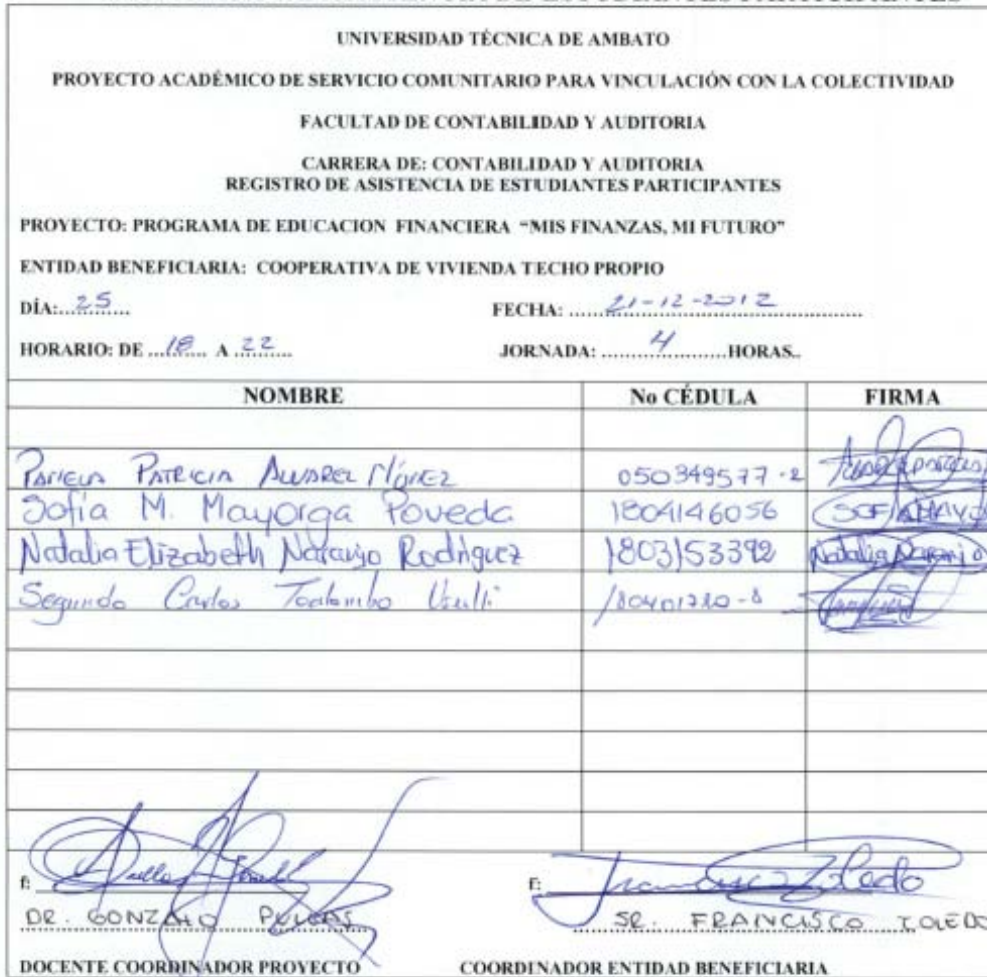 UNIVERSIDAD TÉCNICA DE AMBATO
PROYECTO ACADÉMICO DE SERVICIO COMUNITARIO PARA VINCULACIÓN CON LA COLECTIVIDAD
FACULTAD DE CONTABILIDAD Y AUDITORIA
CARRERA DE: CONTABILIDAD Y AUDITORIA
REGISTRO DE ASISTENCIA DE ESTUDIANTES PARTICIPANTES
PROYECTO: PROGRAMA DE EDUCACION FINANCIERA "MIS FINANZAS, MI FUTURO"
ENTIDAD BENEFICIARIA: COOPERATIVA DE VIVIENDA TECHO PROPIO
DÍA: 25 FECHA: 21-12-2012
HORARIO: DE 18 A 22 JORNADA: 4 HORAS..
NOMBRE No CÉDULA FIRMA
PATRICIA 050349577-2
Sofía M. Mayorga Poveda 1804146056
Natalia Elizabeth Naranjo Rodríguez 1803153392 Natalia Naranjo
Segundo Carlos Toalombo
f: f: Francisco Toledo
DR. GONZALO SR. FRANCISCO TOLEDO
DOCENTE COORDINADOR PROYECTO COORDINADOR ENTIDAD BENEFICIARIA